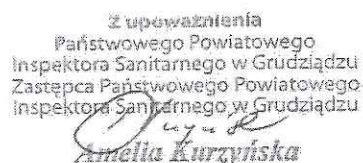 Z upoważnienia
Państwowego Powiatowego
Inspektora Sanitarnego w Grudziądzu
Zastępca Państwowego Powiatowego
Inspektora Sanitarnego w Grudziądzu
Amelia Kurzyńska